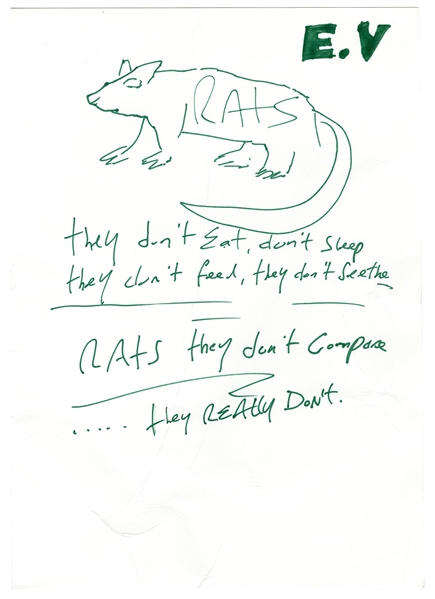 E.V
RATS
they don't Eat, don't sleep
they don't feed, they don't seethe
RATS they don't Compare
..... they REALLY DON'T.